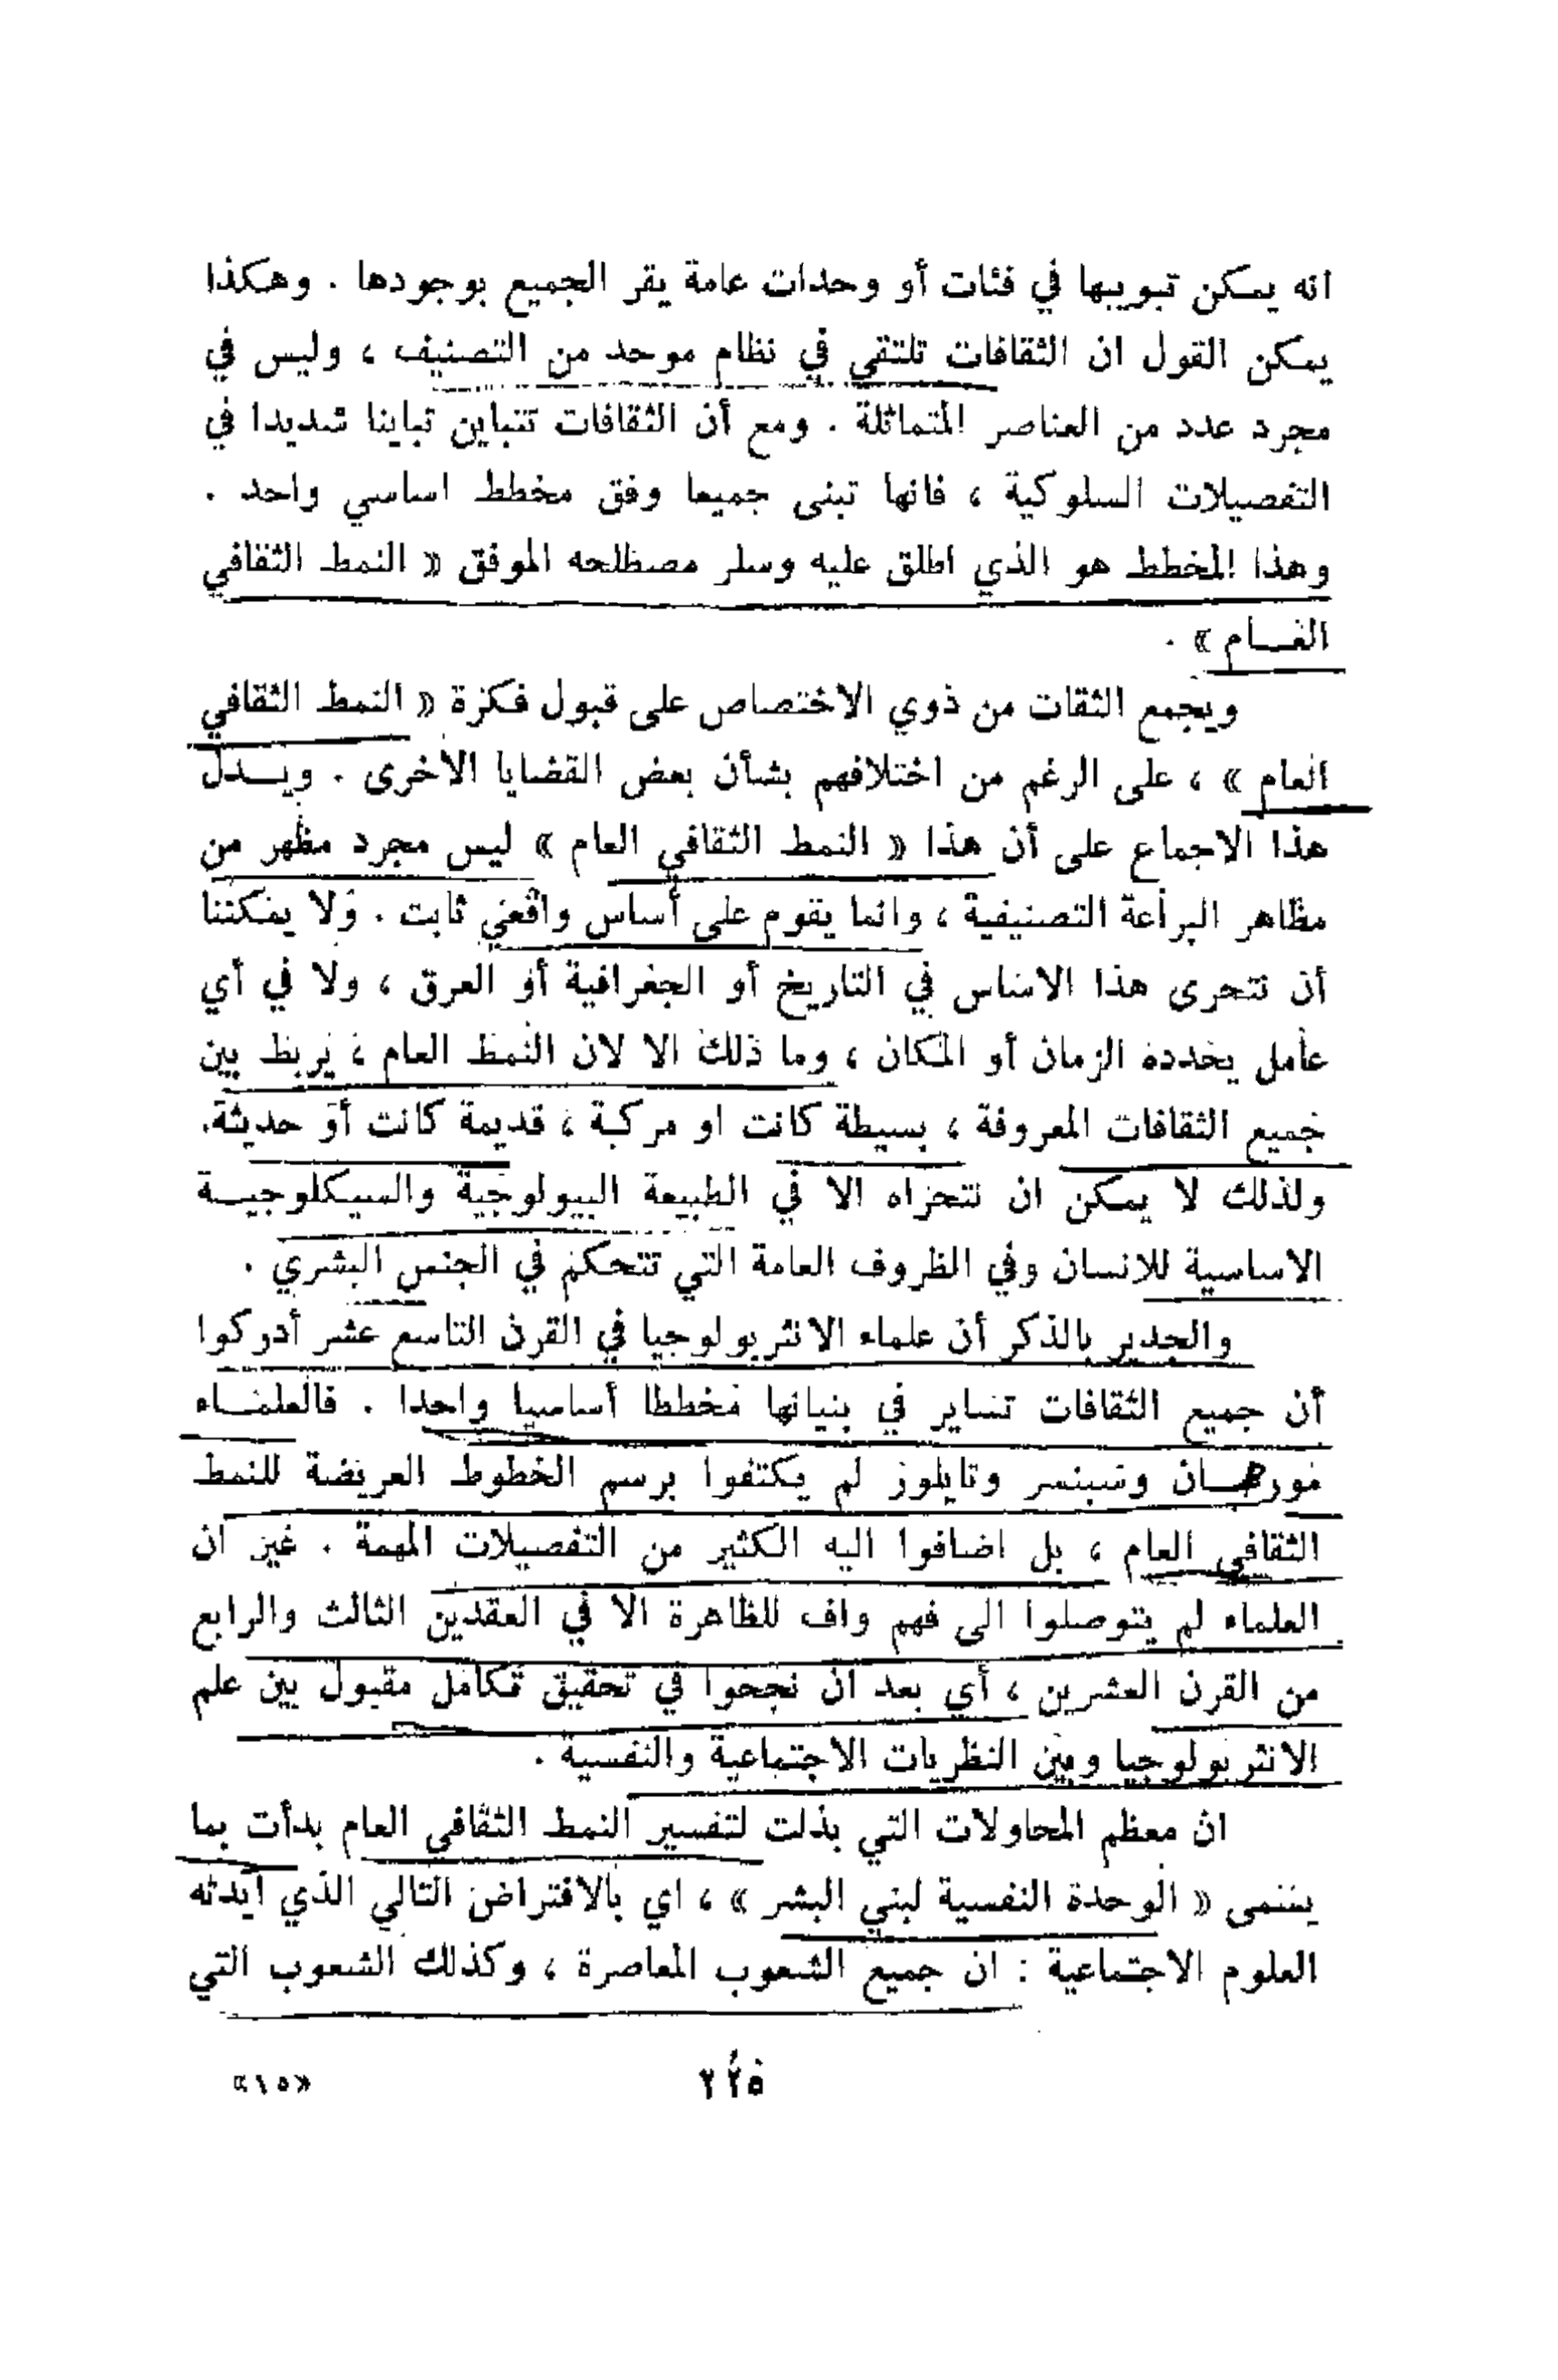 انه يمكن تبويبها في فئات أو وحدات عامة يقر الجميع بوجودها . وهكذا
يمكن القول ان الثقافات تلتقي في نظام موحد من التصنيف ، وليس في
مجرد عدد من العناصر المتماثلة . ومع أن الثقافات تتباين تباينا شديدا في
التفصيلات السلوكية ، فانها تبنى جميعا وفق مخطط اساسي واحد .
وهذا المخطط هو الذي اطلق عليه وسلر مصطلحه الموفق « النمط الثقافي
العـــام » .
ويجمع الثقات من ذوي الاختصاص على قبول فكرة « النمط الثقافي
العام » ، على الرغم من اختلافهم بشأن بعض القضايا الأخرى . ويـــدل
هذا الاجماع على أن هذا « النمط الثقافي العام » ليس مجرد مظهر من
مظاهر البراعة التصنيفية ، وانما يقوم على أساس واقعي ثابت . ولا يمكننا
أن نتحرى هذا الاساس في التاريخ أو الجغرافية أو العرق ، ولا في أي
عامل يحدده الزمان أو المكان ، وما ذلك الا لان النمط العام ، يربط بين
جميع الثقافات المعروفة ، بسيطة كانت او مركبة ، قديمة كانت أو حديثة.
ولذلك لا يمكن ان نتحراه الا في الطبيعة البيولوجية والسيكلوجيـــة
الاساسية للانسان وفي الظروف العامة التي تتحكم في الجنس البشري .
والجدير بالذكر أن علماء الانثربولوجيا في القرن التاسع عشر أدركوا
أن جميع الثقافات تساير في بنيانها مخططا أساسيا واحدا . فالعلمـــاء
مورجـــان وسبنسر وتايلور لم يكتفوا برسم الخطوط العريضة للنمط
الثقافي العام ، بل اضافوا اليه الكثير من التفصيلات المهمة . غير ان
العلماء لم يتوصلوا الى فهم واف للظاهرة الا في العقدين الثالث والرابع
من القرن العشرين ، أي بعد ان نجحوا في تحقيق تكامل مقبول بين علم
الانثربولوجيا وبين النظريات الاجتماعية والنفسية .
ان معظم المحاولات التي بذلت لتفسير النمط الثقافي العام بدأت بما
يسمى « الوحدة النفسية لبني البشر » ، اي بالافتراض التالي الذي أيدته
العلوم الاجتماعية : ان جميع الشعوب المعاصرة ، وكذلك الشعوب التي
٢٢٥
«١٥»